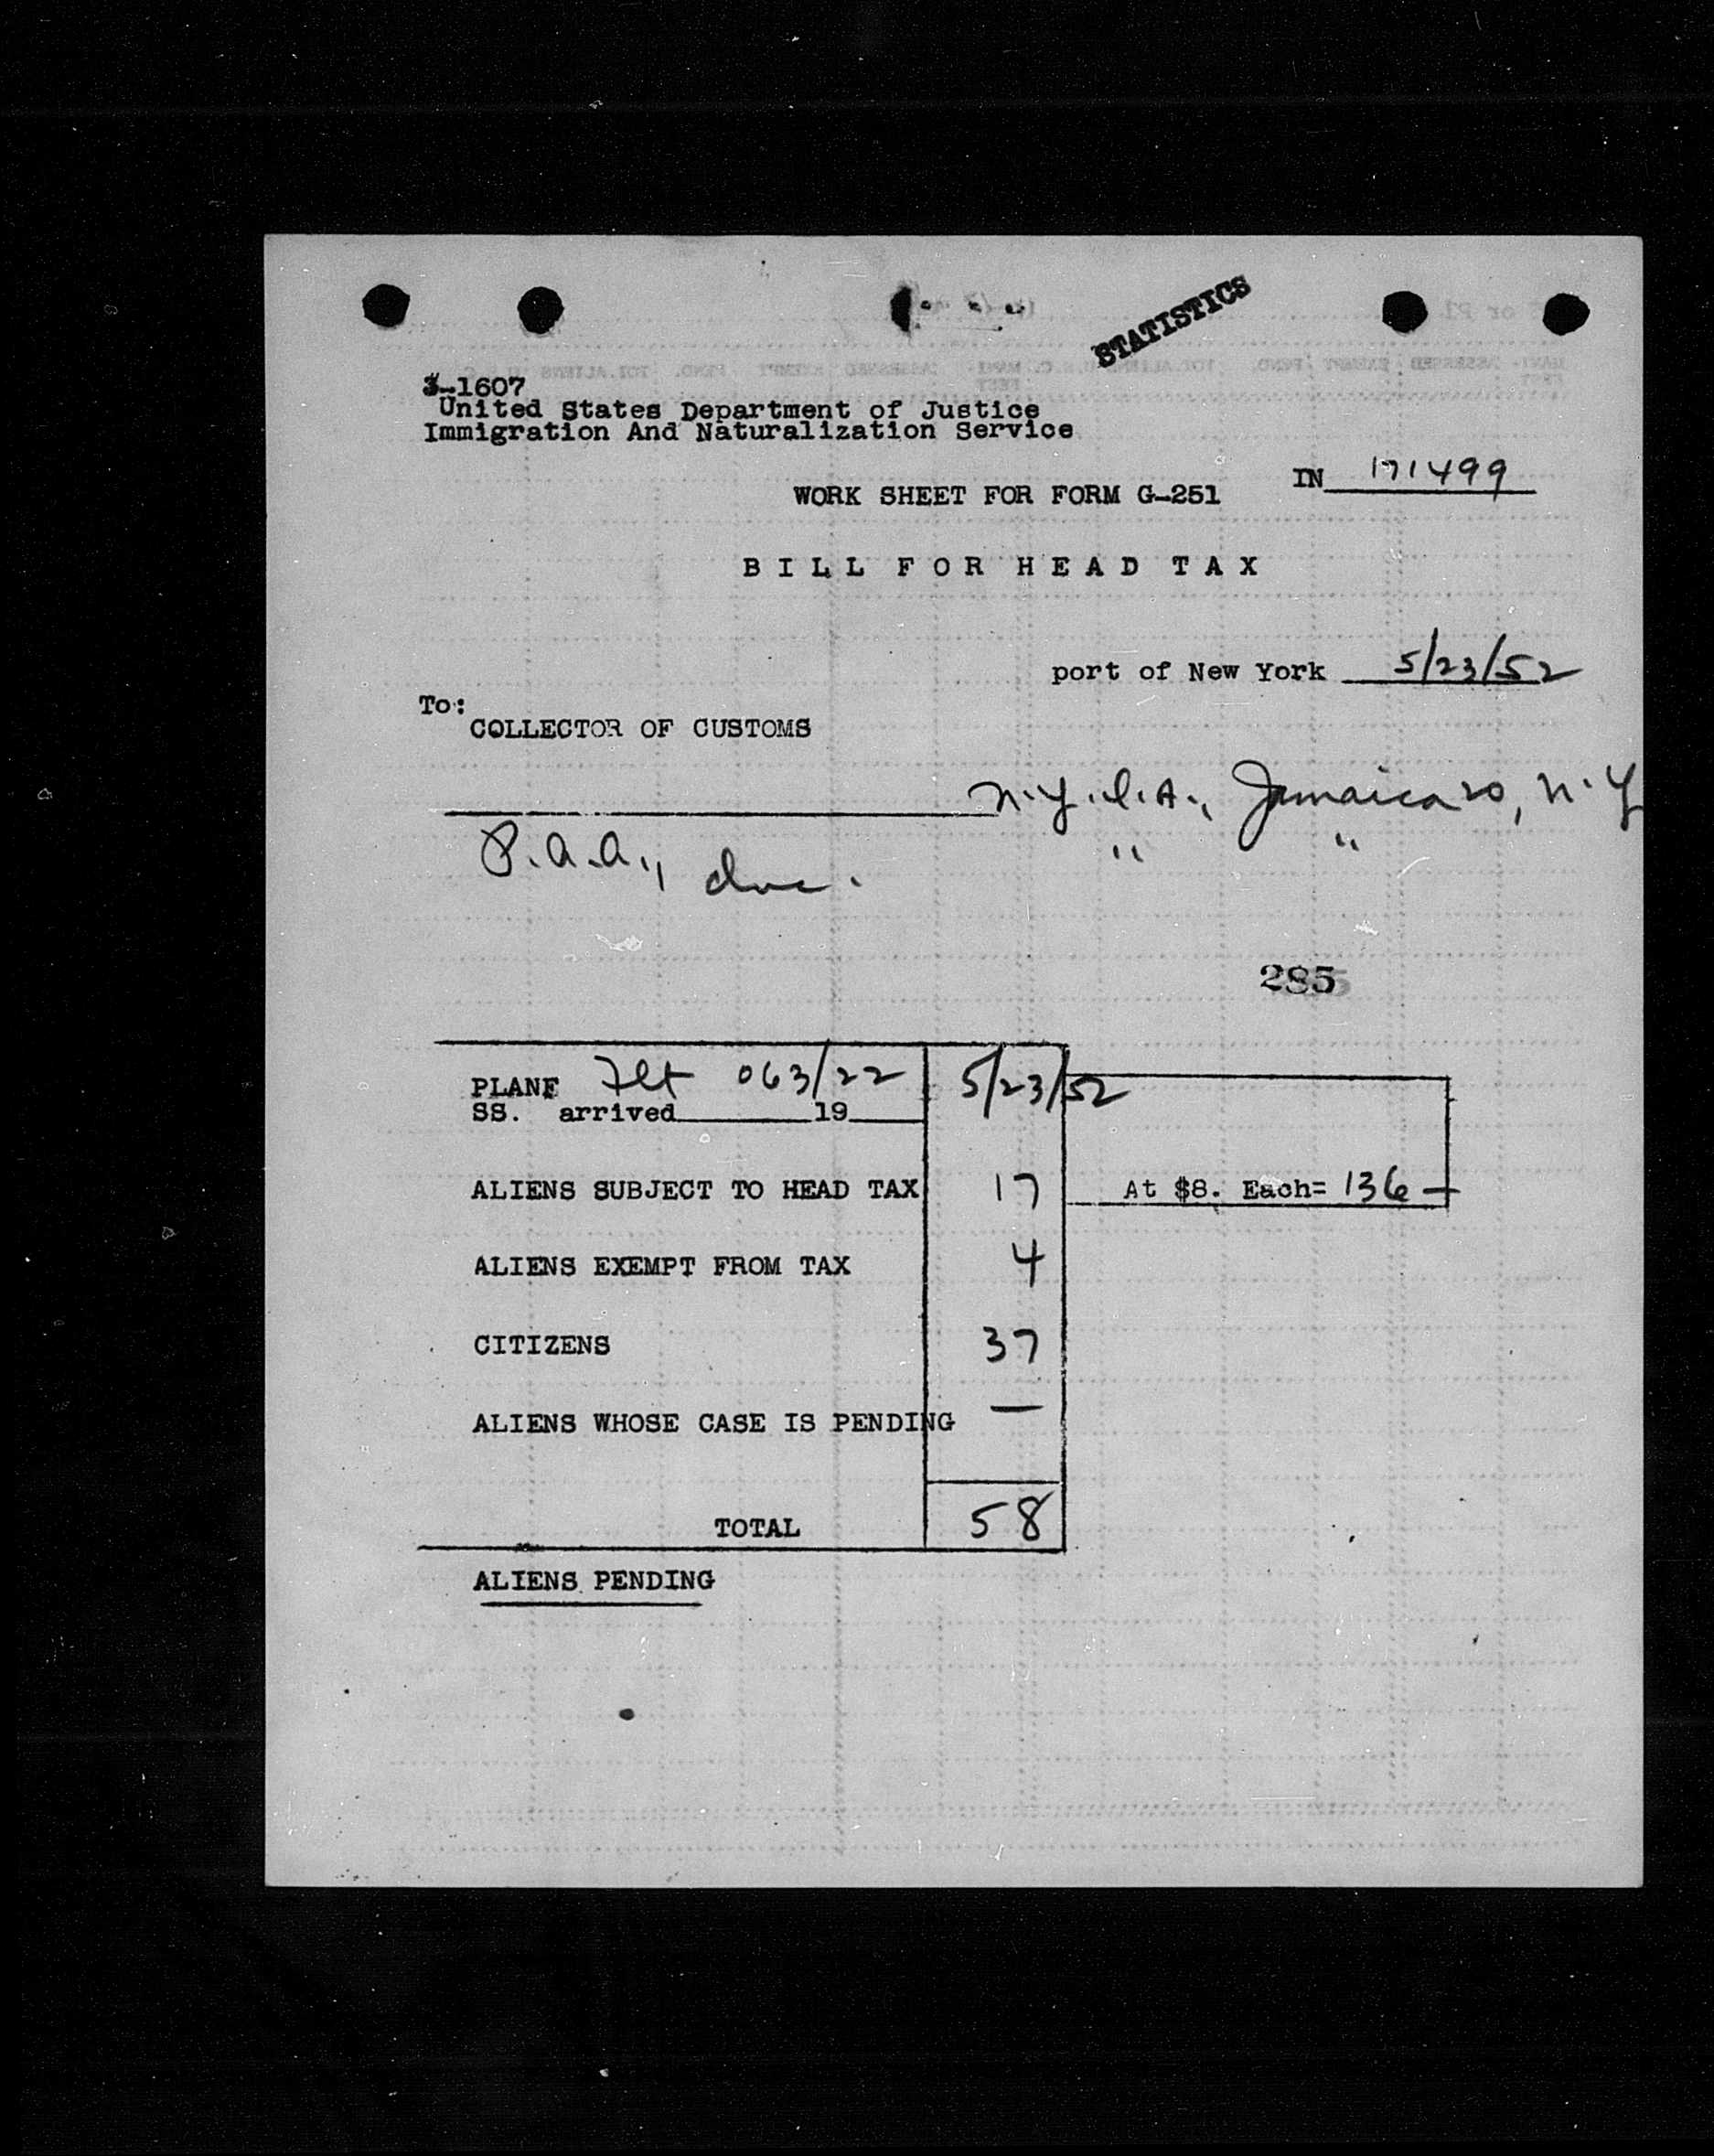 STATISTICS
3-1607
United States Department of Justice
Immigration And Naturalization Service
IN 171499
WORK SHEET FOR FORM G-251
BILL FOR HEAD TAX
port of New York 5/23/52
To:
COLLECTOR OF CUSTOMS
N.Y.I.A., Jamaica 20, N.Y
P.A.A., Inc. " "
285
PLANE Flt 063/22 5/23/52
SS. arrived 19
ALIENS SUBJECT TO HEAD TAX 17 At $8. Each= 136 —
ALIENS EXEMPT FROM TAX 4
CITIZENS 37
ALIENS WHOSE CASE IS PENDING —
TOTAL 58
ALIENS PENDING